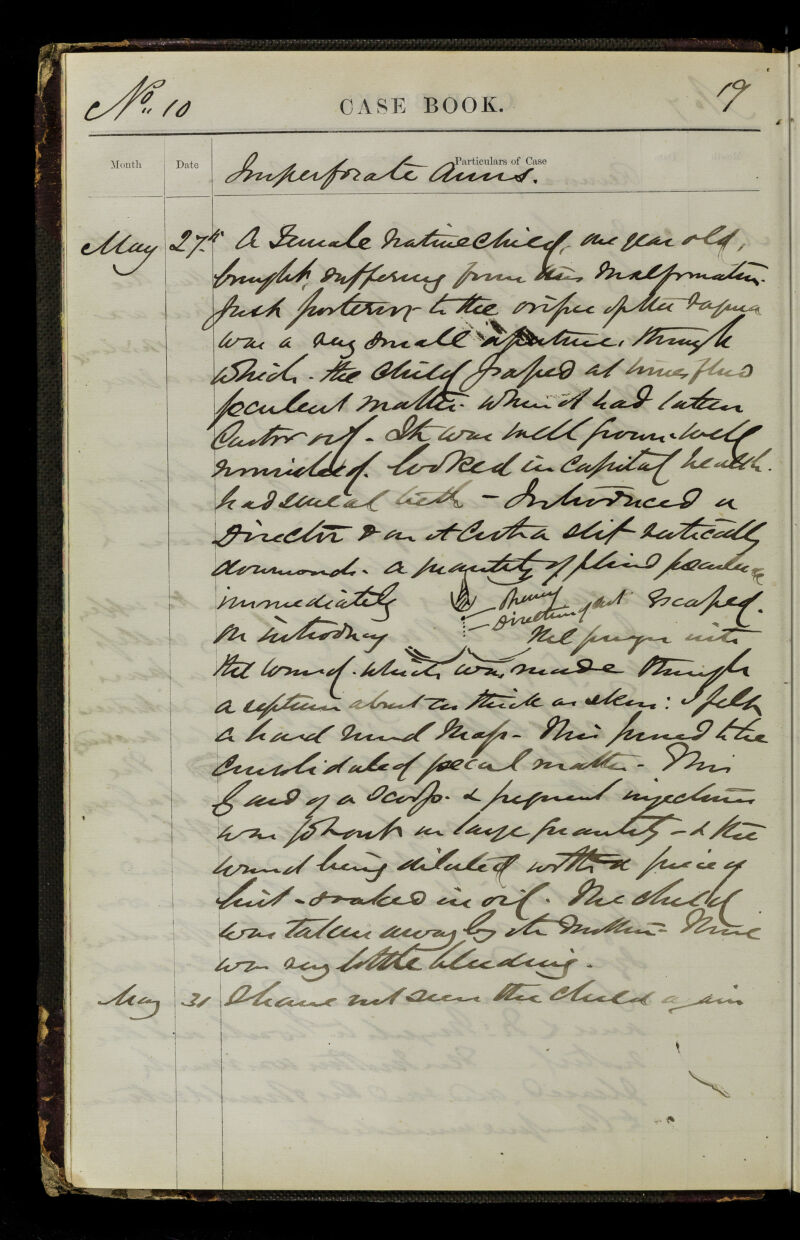 No. 10
CASE BOOK.
19
Month
Date
Particulars of Case
Imperforate Anus.
May 27th A Female native child, one year old,
brought, suffering from this malformation.
Just posterior to the orifice of the vagina
was a very small aperture, through
which the child passed at times fluid
feculent matter when it had taken
Castor oil - It was well grown, well
nourished. looked in capital health.
had several teeth - Introduced a
Director & on it cut a slit vertically
downwards. a quantity of fluid
immediately
escaped.
Shewing
Direction of cut
On introducing
the finger into
the wound. which was made through
a septum about as thick as skin: I felt
a hard round mass - This proved to be
consolidated fecal matter - This
by aid of a scoop. & frequent injections
was got out in large quantity - & the
wound being dilated with a piece of
lint - soaked in oil. The child
was taken away by its mother - There
was very little bleeding.
May 31 I have not seen the child again